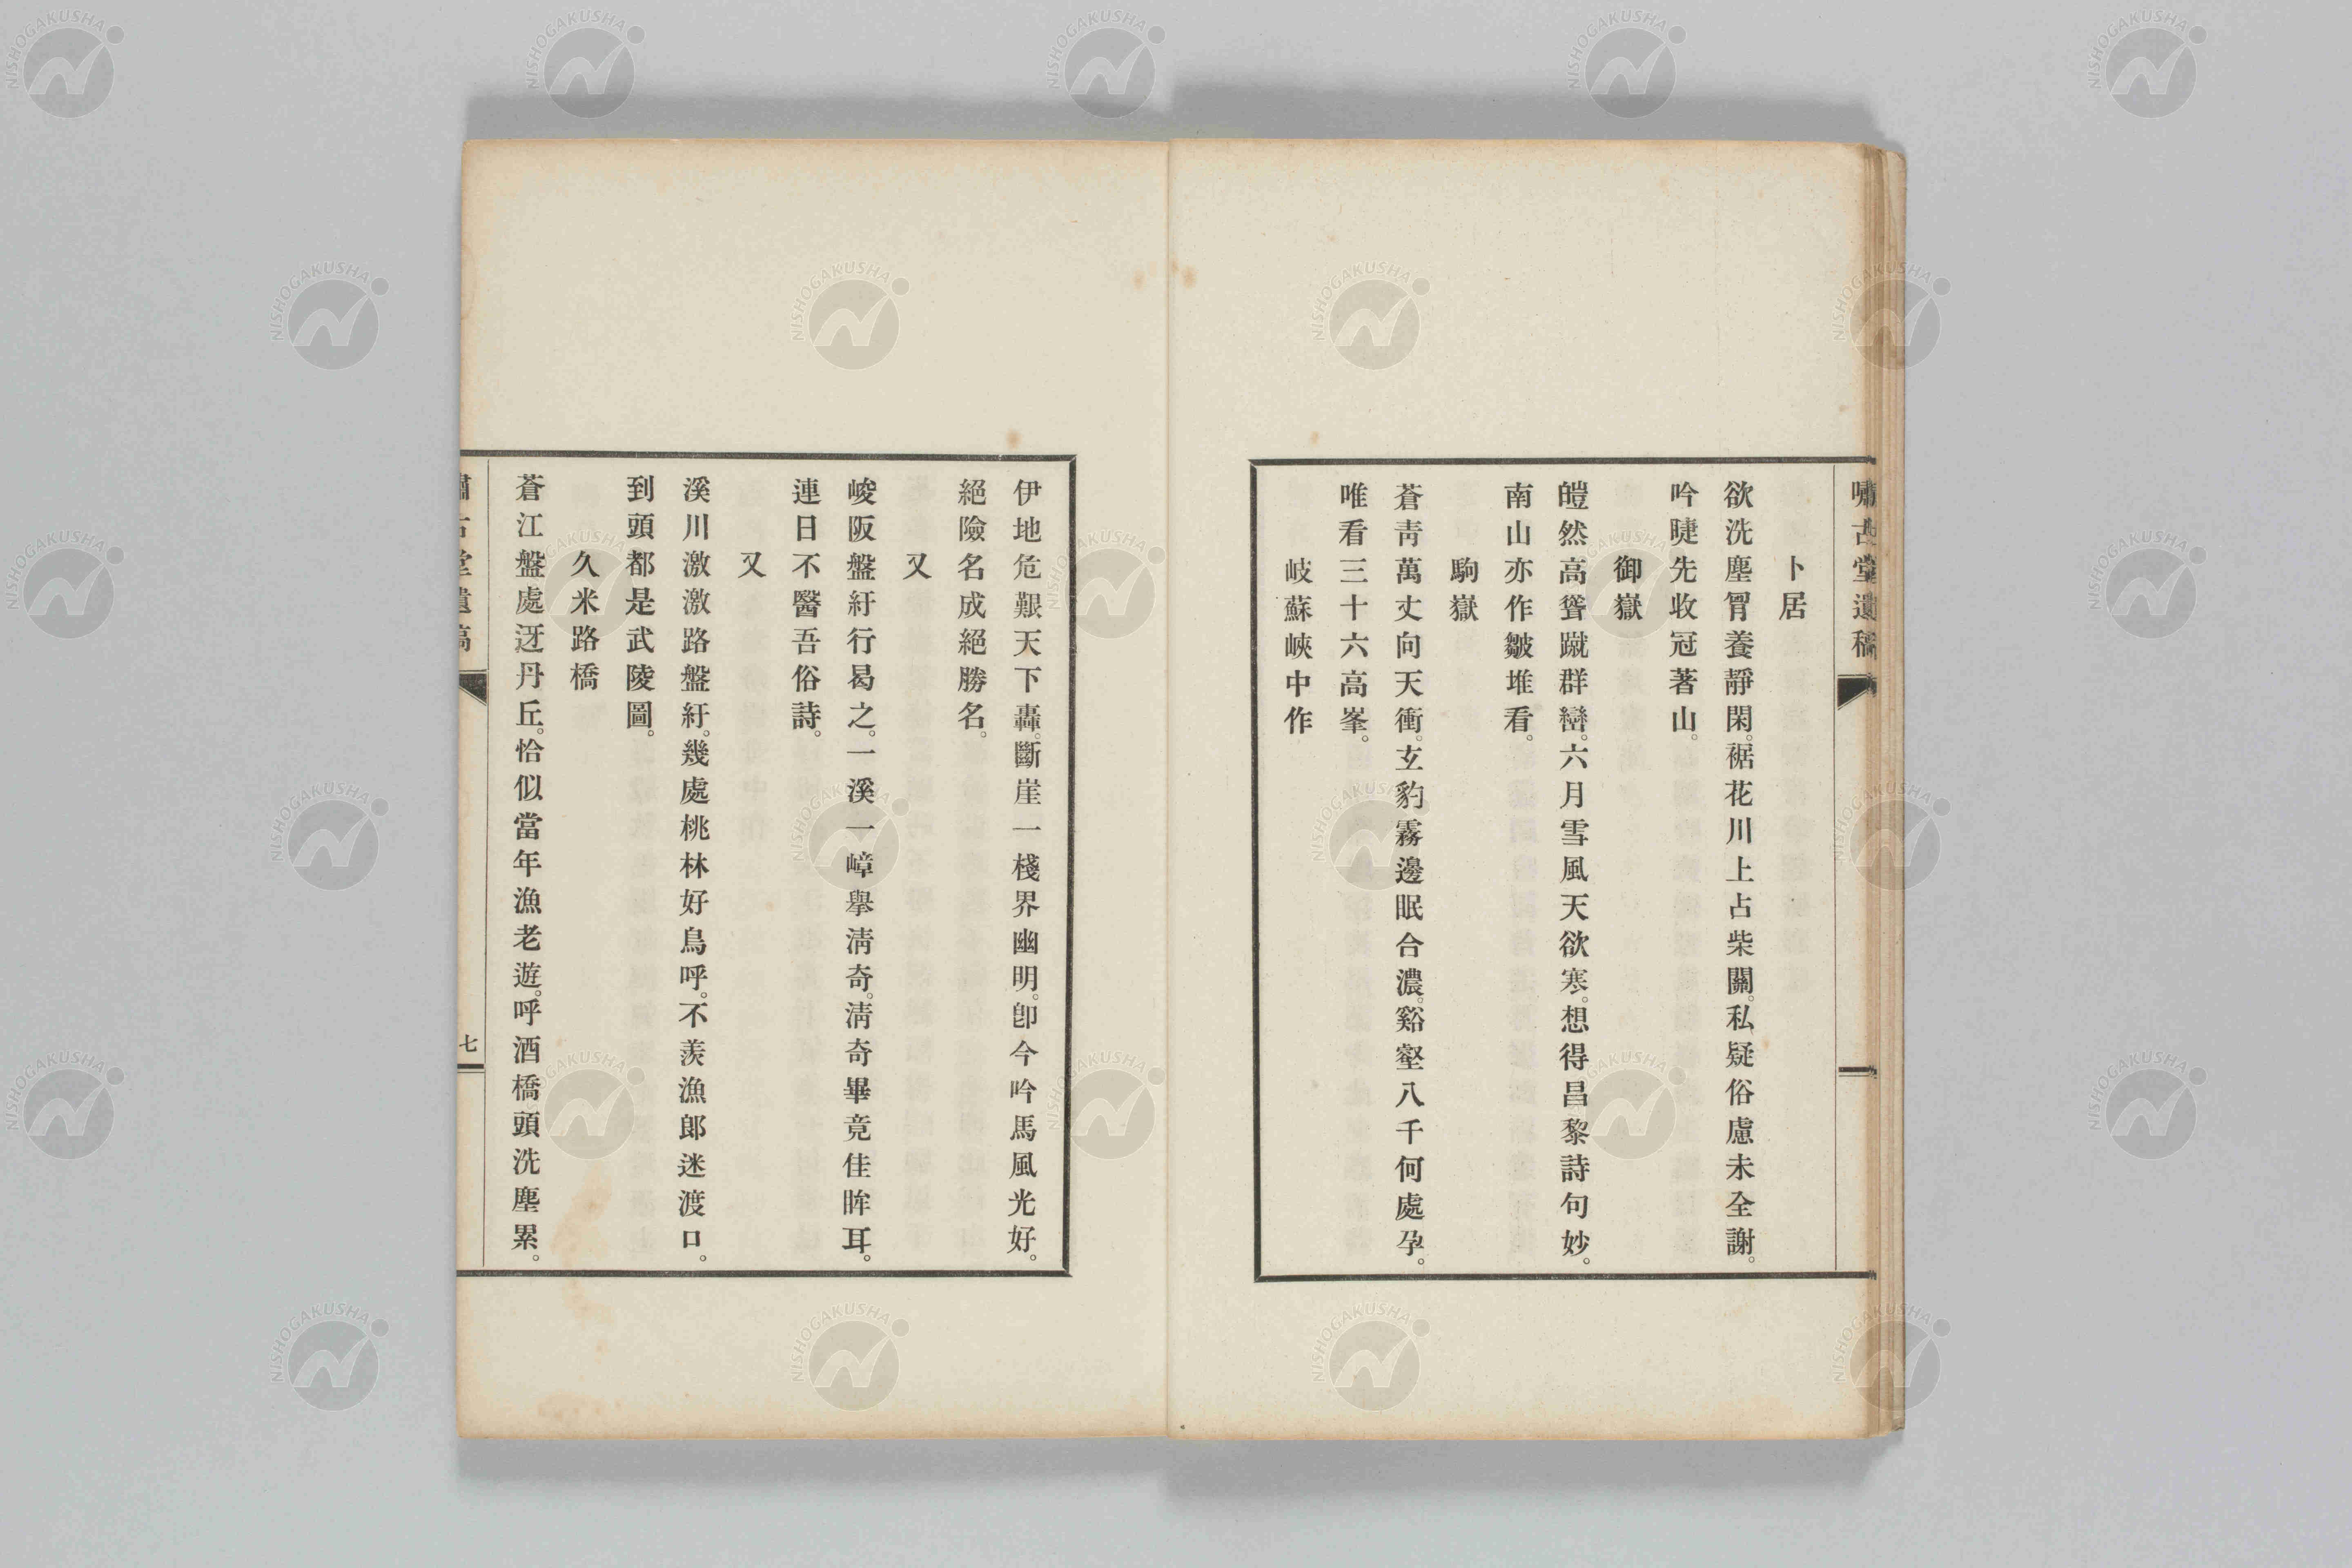 嘯古堂遺稿
卜居
欲洗塵胷養靜閑。裾花川上占柴關。私疑俗慮未全謝。
吟睫先收冠著山。
御嶽
皚然高聳蹴群巒。六月雪風天欲寒。想得昌黎詩句妙。
南山亦作皺堆看。
駒嶽
蒼靑萬丈向天衝。玄豹霧邊眠合濃。谿壑八千何處孕。
唯看三十六高峯。
岐蘇峽中作
伊地危艱天下轟。斷崖一棧界幽明。卽今吟馬風光好。
絕險名成絕勝名。
又
峻阪盤紆行曷之。一溪一嶂擧淸奇。淸奇畢竟佳眸耳。
連日不醫吾俗詩。
又
溪川激激路盤紆。幾處桃林好鳥呼。不羨漁郞迷渡口。
到頭都是武陵圖。
久米路橋
蒼江盤處迓丹丘。恰似當年漁老遊。呼酒橋頭洗塵累。
嘯古堂遺稿
七
NISHOGAKUSHA